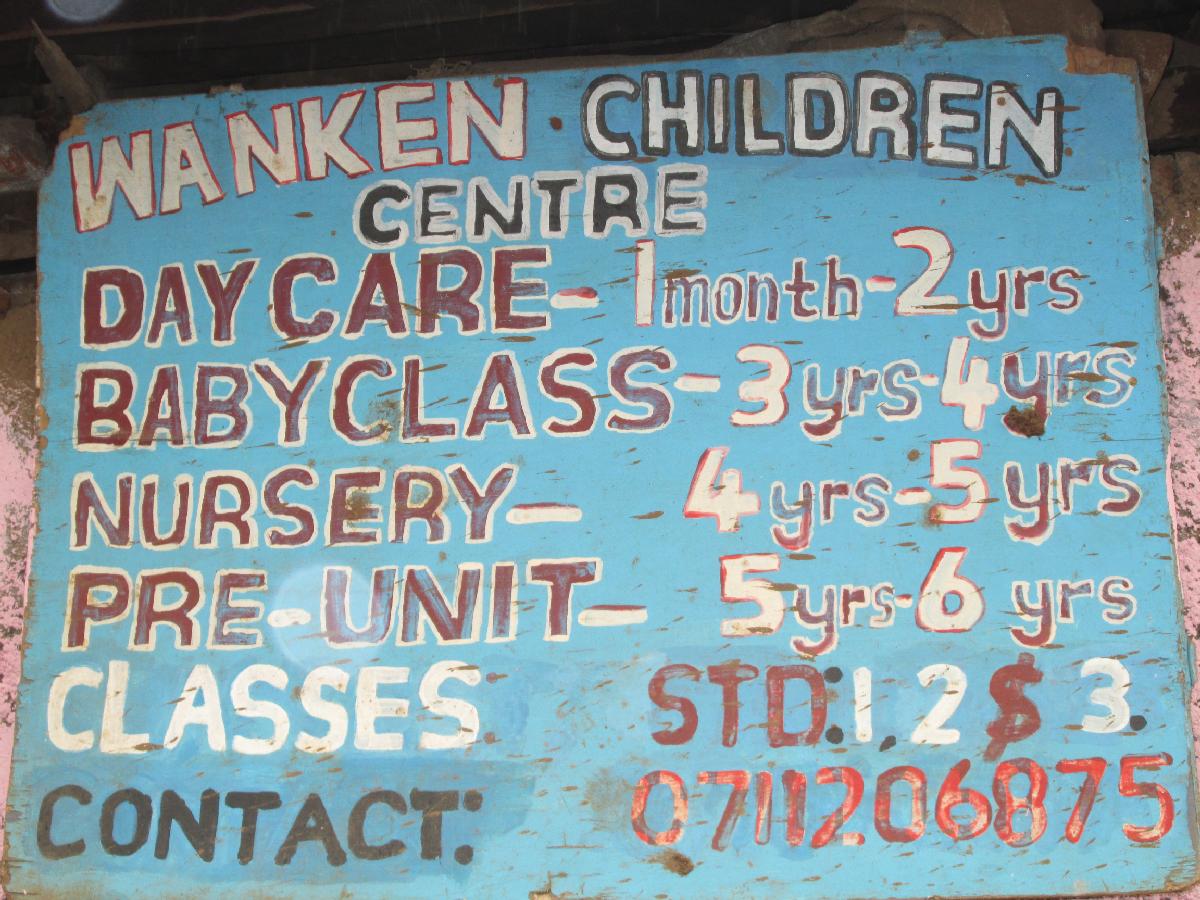 WANKEN CHILDREN
CENTRE
DAY CARE- 1month-2yrs
BABYCLASS-3yrs-4yrs
NURSERY- 4yrs-5yrs
PRE-UNIT- 5yrs-6yrs
CLASSES STD:1,2 $ 3.
CONTACT: 0711206875